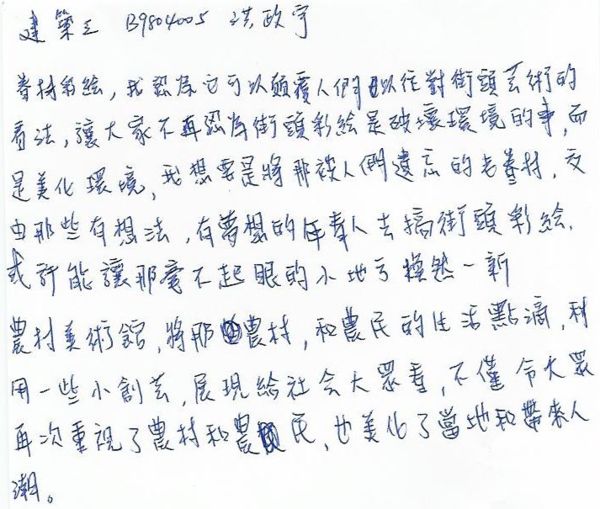 建築三 B9804005 洪政宇
眷村彩繪，我認為它可以顛覆人們以往對街頭藝術的
看法，讓大家不再認為街頭彩繪是破壞環境的事，而
是美化環境，我想要是將那被人們遺忘的老眷村，交
由那些有想法，有夢想的年青人去搞街頭彩繪，
或許能讓那毫不起眼的小地方煥然一新
農村美術館，將那農村，和農民的生活點滴，利
用一些小創芸，展現給社会大眾看，不僅令大眾
再次重視了農村和農民，也美化了當地和帶來人
潮。